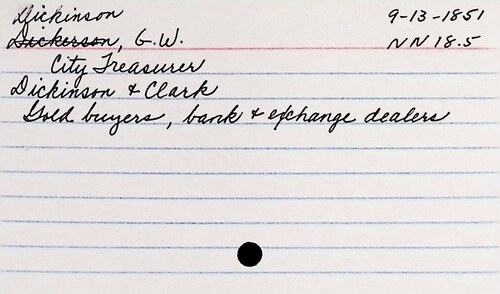 Dickinson 9-13-1851
Dickerson, G.W. NN 18.5
City Treasurer
Dickinson & Clark
Gold buyers, bank & exchange dealers